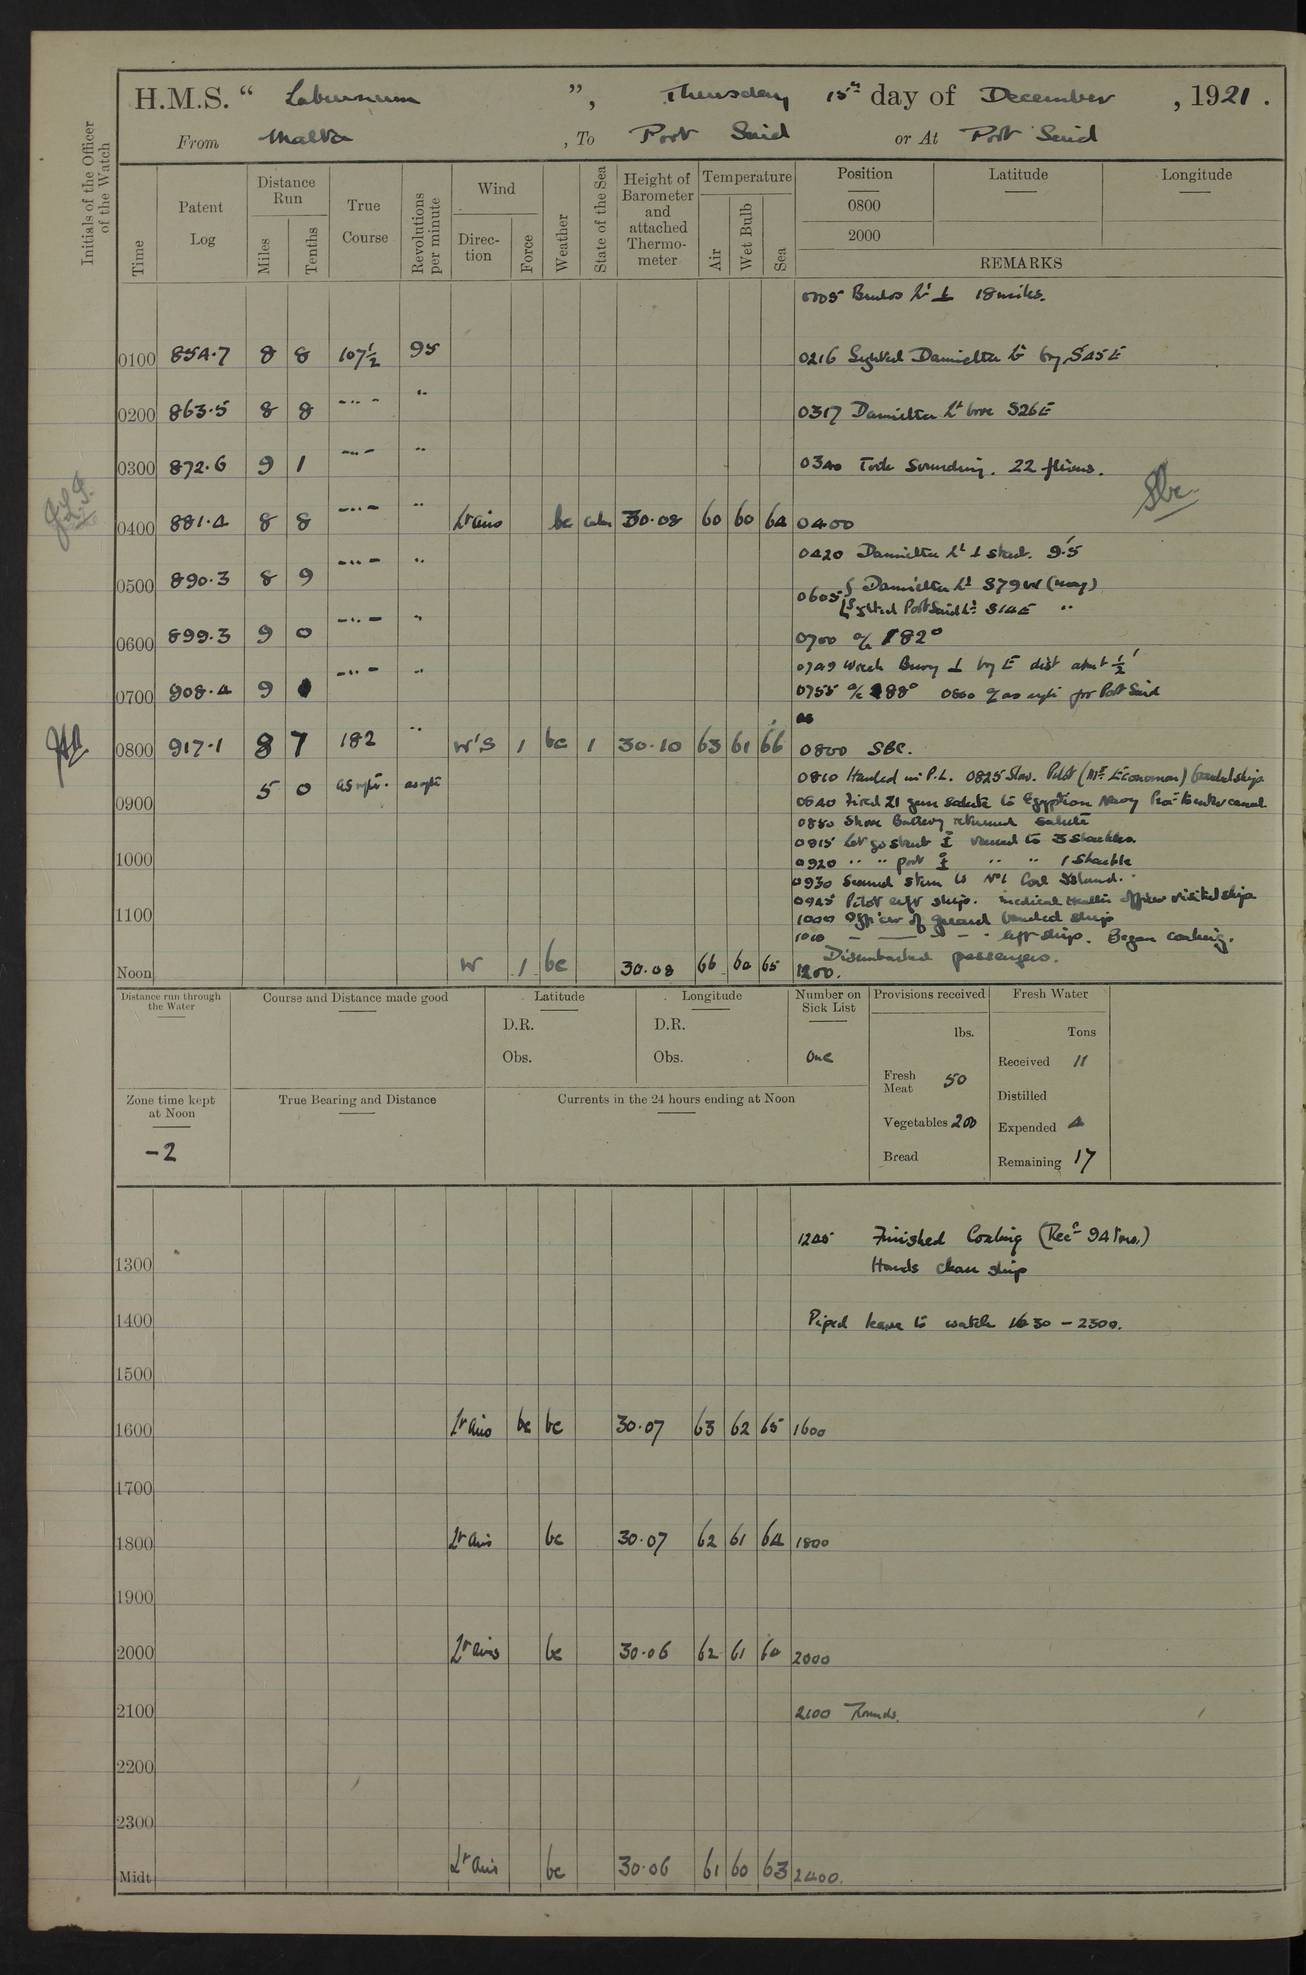 H.M.S. “ Laburnum ”, Thursday 15th day of December , 1921 .
From Malta , To Port Said or At Port Said
Initials of the Officer of the Watch
Time
Patent Log
Distance Run
Miles
Tenths
True Course
Revolutions per minute
Wind
Direc-tion
Force
Weather
State of the Sea
Height of Barometer and attached Thermo-meter
Temperature
Air
Wet Bulb
Sea
Position Latitude Longitude
0800
2000
REMARKS
0005 Burlos Lt ⊥ 18 miles.
0100 854.7 8 8 107½ 95
0216 Sighted Damietta Lt brg S45E
0200 863.5 8 8 " " "
0317 Damietta Lt bore S26E
0300 872.6 9 1 " " "
0340 Took Sounding. 22 fthms.
0400 881.4 8 8 " " " Lt airs bc calm 30.08 60 60 64 0400
0420 Damietta Lt ⊥ stbd. 9.5'
0500 890.3 8 9 " " "
0605 { Damietta Lt S79W (mag)
Sighted Port Said Lt S14E "
0600 899.3 9 0 " " "
0700 a/c 182°
0749 Wreck Buoy ⊥ brg E dist about ½'
0700 908.4 9 1 " " "
0755 a/c 188° 0800 a/c as reqte for Port Said
0800 917.1 8 7 182 " W'S 1 bc 1 30.10 63 61 66 0800 SBC.
5 0 as reqte. as reqte
0810 Hauled in P.L. 0825 Slow. Pilot (Mr Economon) boarded ship
0900
0840 Fired 21 gun salute to Egyptian Navy Prior to enter canal
0850 Shore Battery returned salute
0915 Let go stbd ⚓ veered to 3 Shackles.
1000
0920 " " port ⚓ " " 1 Shackle
0930 Secured stern to No 1 Coal Island.
0945 Pilot left ship. Medical Health Officer visited ship
1100
1000 Officer of guard boarded ship
1010 — — — left ship. Began coaling.
Disembarked passengers.
Noon W 1 bc 30.08 66 60 65 1200.
Distance run through the Water
Course and Distance made good
Latitude
D.R.
Obs.
Longitude
D.R.
Obs.
Number on Sick List
One
Provisions received
lbs.
Fresh Meat 50
Vegetables 200
Bread
Fresh Water
Tons
Received 11
Distilled
Expended 4
Remaining 17
Zone time kept at Noon
-2
True Bearing and Distance
Currents in the 24 hours ending at Noon
1245 Finished Coaling (Recd 94 Tons.)
1300 Hands clean ship
1400 Piped leave to watch 1630 - 2300.
1500
1600 Lt airs bc bc 30.07 63 62 65 1600
1700
1800 Lt airs bc 30.07 62 61 64 1800
1900
2000 Lt airs bc 30.06 62 61 64 2000
2100 2100 Rounds.
2200
2300
Midt Lt airs bc 30.06 61 60 63 2400.